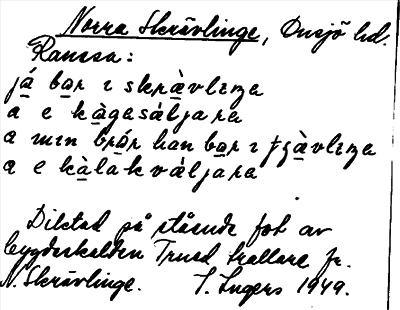 Norra Skrävlinge, Onsjö hd.
Ramsa:
já bo̲r ɪ skrɛ̀vlɪŋa
a e kàgesɛ́ljara
a min brór han bo̲r ɪ tjàvlɪŋa
a e kàlakváljara
Diktad på stående fot av
bygdeskalden Trued trallare fr.
N. Skrävlinge. I. Ingers 1949.